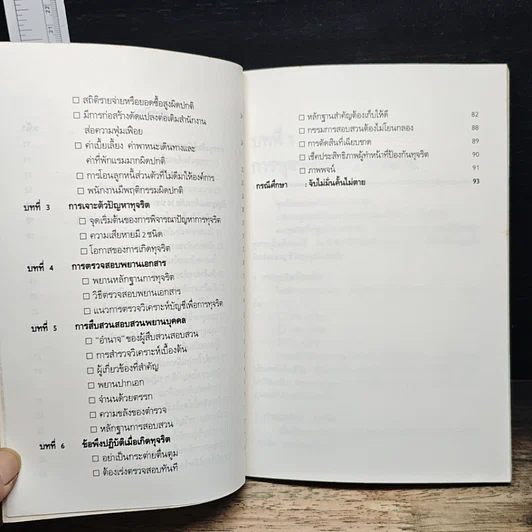 ☐ สถิติรายจ่ายหรือยอดซื้อสูงผิดปกติ
☐ มีการก่อสร้างดัดแปลงต่อเติมสำนักงาน
ส่อความฟุ่มเฟือย
☐ ค่าเบี้ยเลี้ยง ค่าพาหนะเดินทางและ
ค่าที่พักแรมมากผิดปกติ
☐ การโอนลูกหนี้ส่วนตัวที่ไม่ดีมาให้องค์การ
☐ พนักงานมีพฤติกรรมผิดปกติ
บทที่ 3 การเจาะตัวปัญหาทุจริต
☐ จุดเริ่มต้นของการพิจารณาปัญหาการทุจริต
☐ ความเสียหายมี 2 ชนิด
☐ โอกาสของการเกิดทุจริต
บทที่ 4 การตรวจสอบพยานเอกสาร
☐ พยานหลักฐานการทุจริต
☐ วิธีตรวจสอบพยานเอกสาร
☐ แนวการตรวจวิเคราะห์บัญชีเพื่อการทุจริต
บทที่ 5 การสืบสวนสอบสวนพยานบุคคล
☐ "อำนาจ" ของผู้สืบสวนสอบสวน
☐ การสำรวจวิเคราะห์เบื้องต้น
☐ ผู้เกี่ยวข้องที่สำคัญ
☐ พยานปากเอก
☐ จำนนด้วยตรรก
☐ ความขลังของตำรวจ
☐ หลักฐานการสอบสวน
บทที่ 6 ข้อพึงปฏิบัติเมื่อเกิดทุจริต
☐ อย่าเป็นกระต่ายตื่นตูม
☐ ต้องเร่งตรวจสอบทันที
☐ หลักฐานสำคัญต้องเก็บให้ดี 82
☐ กรรมการสอบสวนต้องไม่โยนกลอง 88
☐ การตัดสินที่เฉียบขาด 89
☐ เช็คประสิทธิภาพผู้ทำหน้าที่ป้องกันทุจริต 90
☐ ภาพพจน์ 91
กรณีศึกษา : จับไม่มั่นคั้นไม่ตาย 93